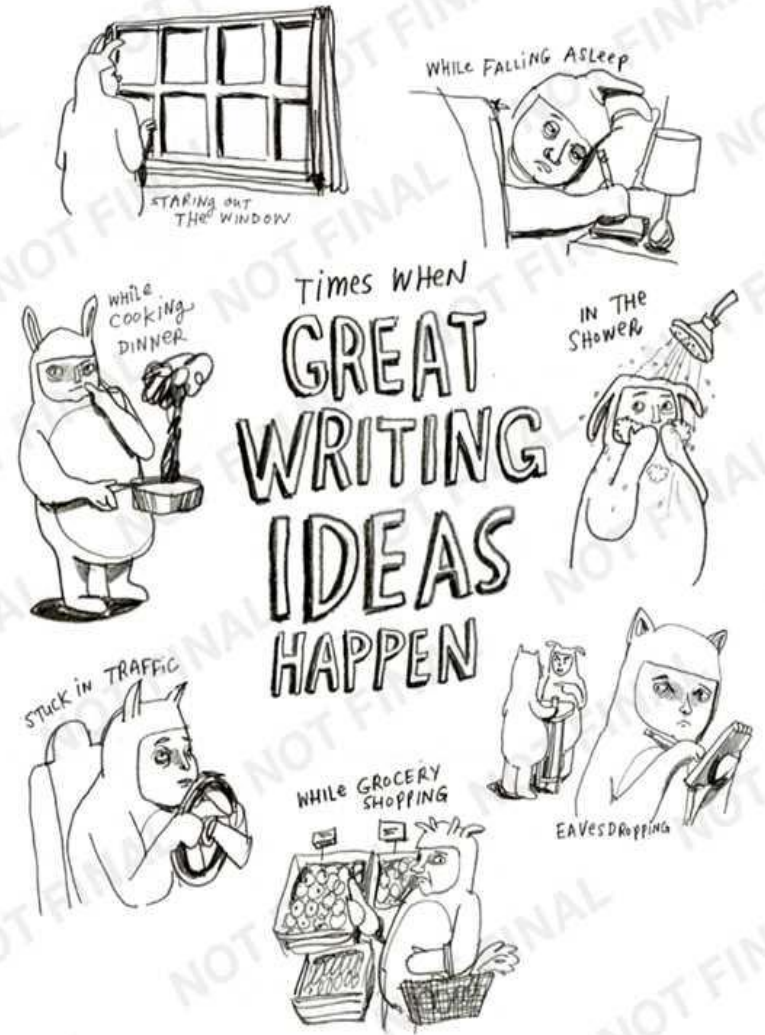 STARING OUT
THE WINDOW
WHILE FALLING ASLEEP
WHILE
COOKING
DINNER
TIMES WHEN
GREAT
WRITING
IDEAS
HAPPEN
IN THE
SHOWER
STUCK IN TRAFFIC
WHILE GROCERY
SHOPPING
EAVESDROPPING
NOT FINAL